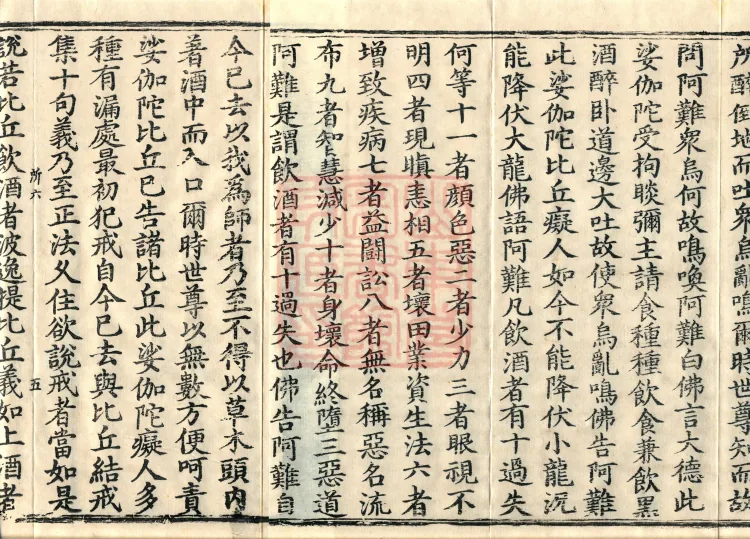 所醉倒地而吐眾烏亂鳴爾時世尊知而故
問阿難眾烏何故鳴喚阿難白佛言大德此
娑伽陀受拘睒彌主請食種種飲食兼飲黑
酒醉臥道邊大吐故使眾烏亂鳴佛告阿難
此娑伽陀比丘癡人如今不能降伏小龍況
能降伏大龍佛語阿難凡飲酒者有十過失
何等十一者顏色惡二者少力三者眼視不
明四者現瞋恚相五者壞田業資生法六者
增致疾病七者益鬪訟八者無名稱惡名流
布九者智慧減少十者身壞命終墮三惡道
阿難是謂飲酒者有十過失也佛告阿難自
今已去以我為師者乃至不得以草木頭內
著酒中而入口爾時世尊以無數方便呵責
娑伽陀比丘已告諸比丘此娑伽陀癡人多
種有漏處最初犯戒自今已去與比丘結戒
集十句義乃至正法久住欲說戒者當如是
所六 五
說若比丘飲酒者波逸提比丘義如上酒者